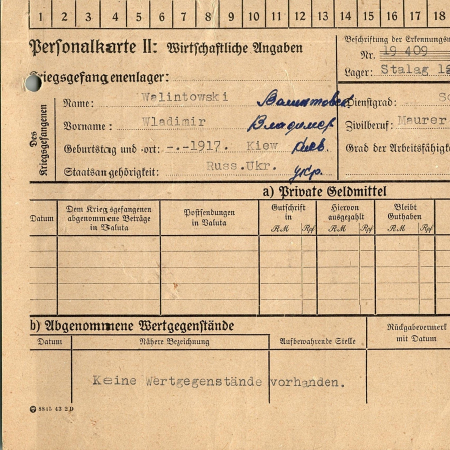 1 2 3 4 5 6 7 8 9 10 11 12 13 14 15 16 17 18
Personalkarte II: Wirtschaftliche Angaben
Beschriftung der Erkennungs
Nr. 19 409
Lager: Stalag
Kriegsgefangenenlager:
Des Kriegsgefangenen
Name: Walintowski Валинтовск Dienstgrad: So
Vorname: Wladimir Владимер Zivilberuf: Maurer
Geburtstag und -ort: -.-1917. Kiew Киев. Grad der Arbeitsfähigke
Staatsangehörigkeit: Russ.Ukr. укр.
a) Private Geldmittel
Datum
Dem Kriegsgefangenen abgenommene Beträge in Valuta
Postsendungen in Valuta
Gutschrift in
RM Rpf
Hiervon ausgezahlt
RM Rpf
Bleibt Guthaben
RM Rpf
b) Abgenommene Wertgegenstände
Datum Nähere Bezeichnung Aufbewahrende Stelle Rückgabevermerk mit Datum
Keine Wertgegenstände vorhanden.
8845 43 2D